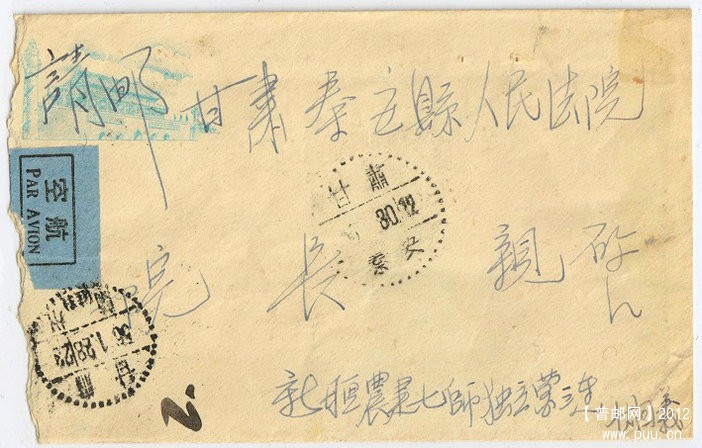 請邮 甘肅秦安縣人民法院
院長親啓
新疆農建七師独立营三連
航空
PAR AVION
甘肅
30.12
秦安
56.1.28
甘肅
2.
【普邮网】2012
www.puu.cn